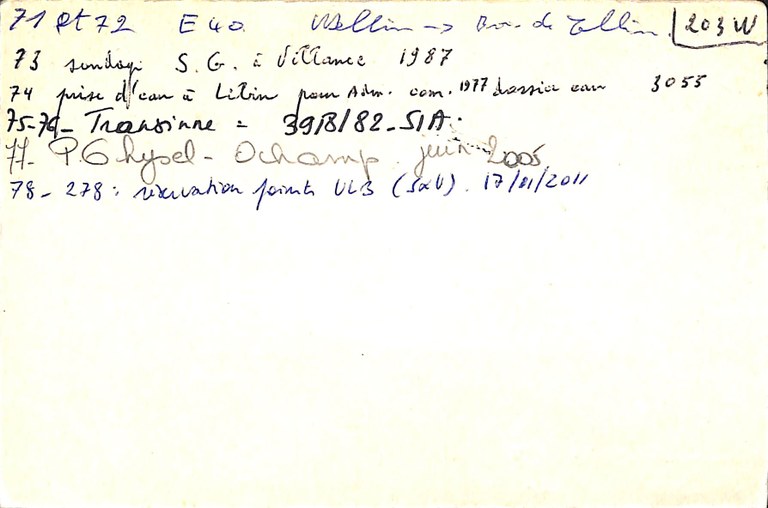 71 et 72 E40 Wellin -> Bois de Tellin. 203W
73 sondage S.G. à Villance 1987
74 prise d'eau à Libin pour Adm. com. 1977 dossier eau 3055
75-76- Transinne = 39B/82-SIA.
77- P. Ghysel - Ochamp. juin 2005
78-278: réservation points ULB (SxW). 17/01/2011